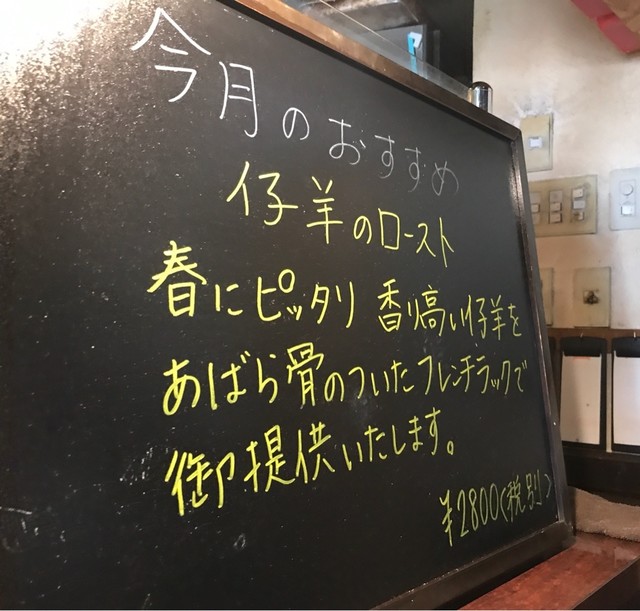 今月のおすすめ
仔羊のロースト
春にピッタリ 香り高い仔羊を
あばら骨のついたフレンチラックで
御提供いたします。
¥2800(税別)